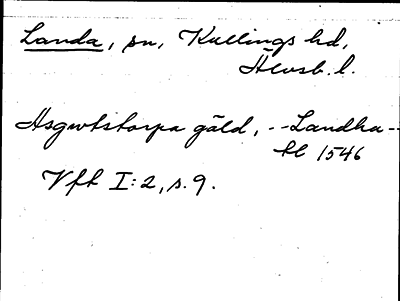 Landa, sn, Kullings hd,
Älvsb. l.
Asgutstorpa gäld, -- Landha --
kl 1546
Vfk I:2, s. 9.